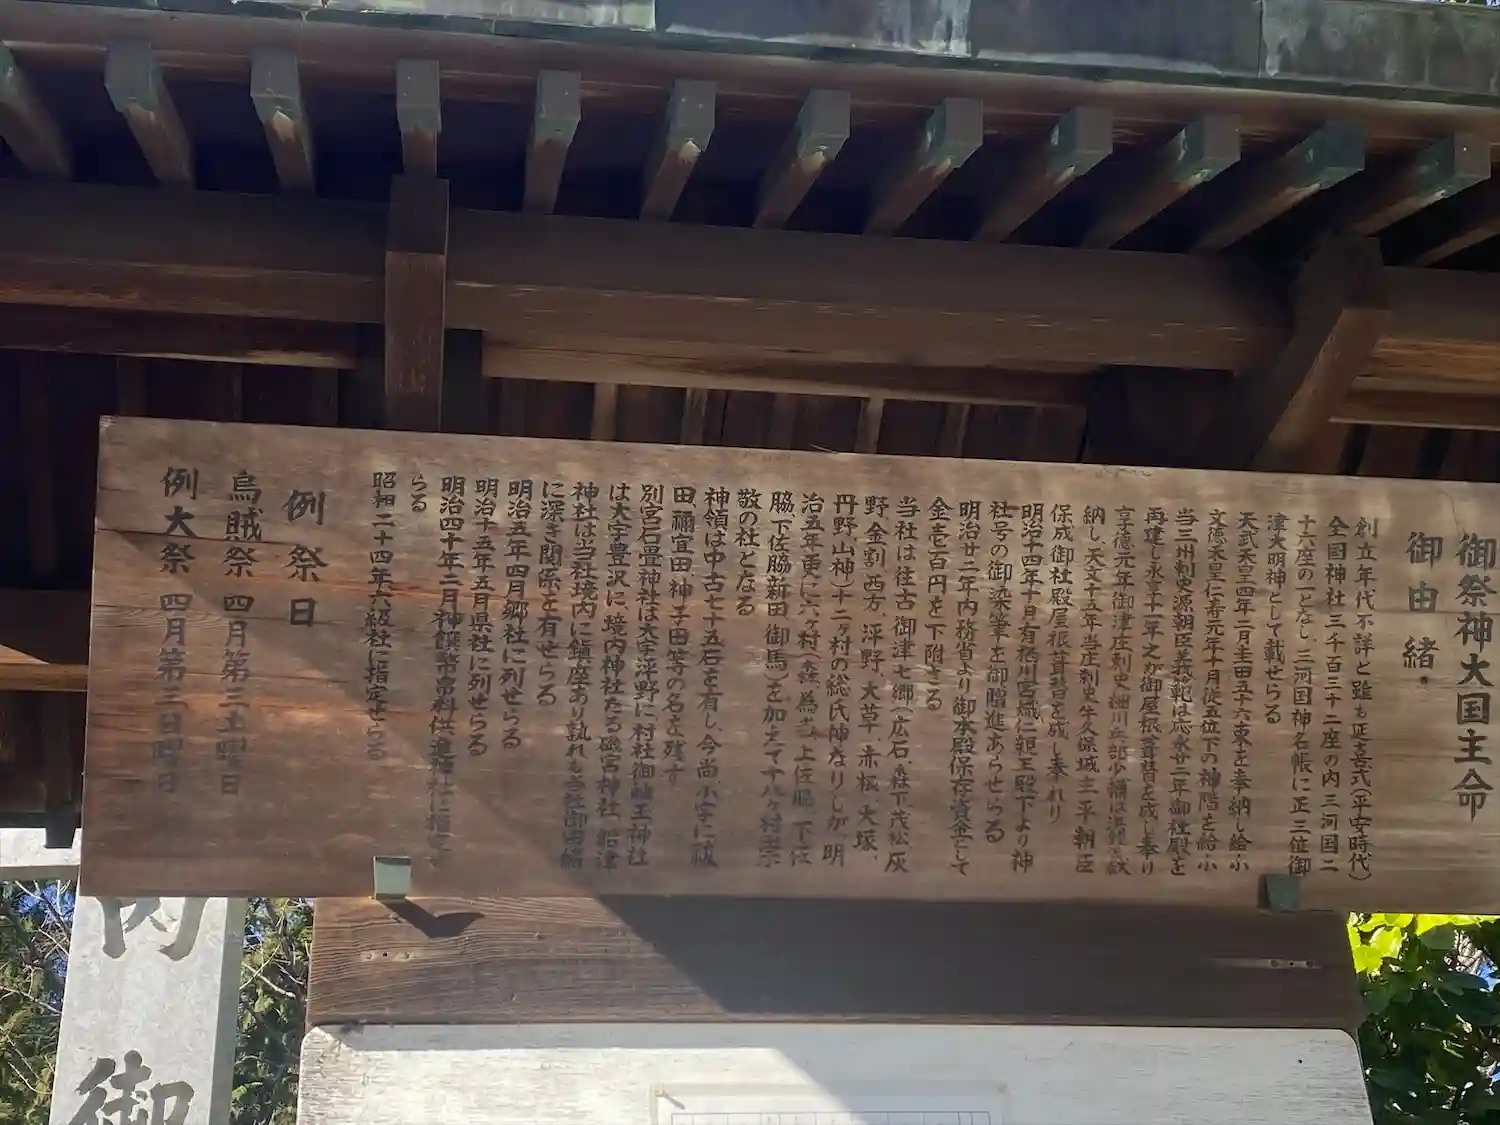 御祭神大国主命
御由緒
創立年代不詳と雖も延喜式(平安時代)
全国神社三千百三十二座の内三河国二
十六座の一となし、三河国神名帳に正三位御
津大明神として載せらる
天武天皇四年二月圭田五十六束を奉納し給ふ
文徳天皇仁寿元年十月従五位下の神階を給ふ
当三州刺史源朝臣義範は応永廿二年御社殿を
再建し永享十二年之が御屋根葺替を成し奉り
享徳元年御津庄刺史細川兵部少輔は
納し、天文十五年当庄刺史牛久保城主平朝臣
保成御社殿屋根葺替を成し奉れり
明治十四年十月有栖川宮熾仁親王殿下より神
社号の御染筆を御贈進あらせらる
明治廿二年内務省より御本殿保存資金として
金壱百円を下附さる
当社は往古、御津七郷(広石、森下、茂松、灰
野、金割、西方、泙野、大草、赤根、大塚、
丹野山神)十二ヶ村の総氏神なりしが、明
治五年更に六ヶ村(森、為当、上佐脇、下佐
脇、下佐脇新田、御馬)を加えて十八ヶ村崇
敬の社となる
神領は中古七十五石を有し、今尚、小字に祓
田、禰宜田、神子田等の名を残す
別宮石畳神社は大字泙野に、村社御舳玉神社
は大字豊沢に、境内神社たる磯宮神社、船津
神社は当社境内に鎮座あり孰れも当社御由緒
に深き関係を有せらる
明治五年四月郷社に列せらる
明治十五年五月県社に列せらる
明治四十年二月神饌幣帛料供進神社に指定せ
らる
昭和二十四年六級社に指定せらる
例祭日
烏賊祭 四月第三土曜日
例大祭 四月第三日曜日
内
御